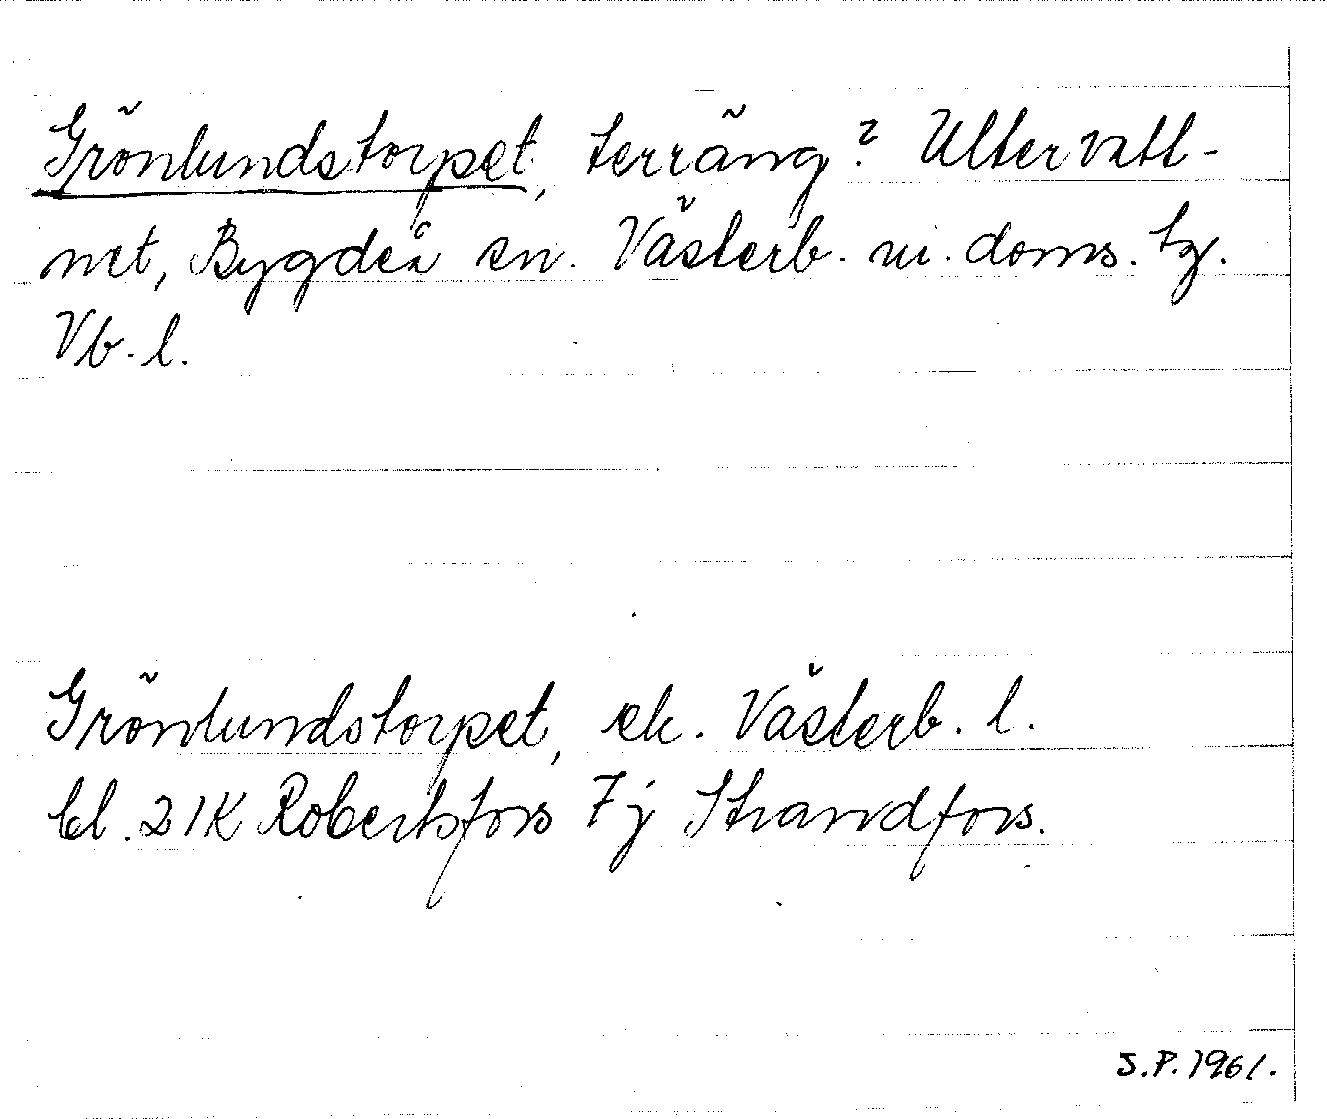 Grönlundstorpet, terräng? Ultervatt-
net, Bygdeå sn. Västerb. m. doms. tg.
Vb. l.
Grönlundstorpet, ek. Västerb. l.
bl. 21K Robertsfors 7j Strandfors.
S.P. 1961.